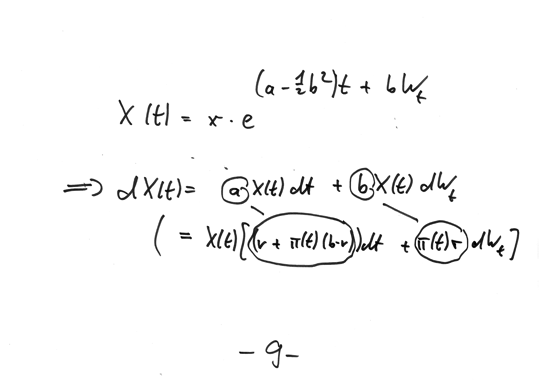 X(t) = x · e^{(a - ½b²)t + bW_t}
=> dX(t) = a X(t) dt + b X(t) dW_t
( = X(t)[(r + π(t)(b-r))dt + π(t)σ dW_t]
- 9 -